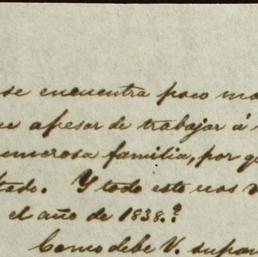 se encuentra poco
apesar de trabajar á
familia, por
tado. Y todo esto nos
el año de 1838.?
Como debe V.